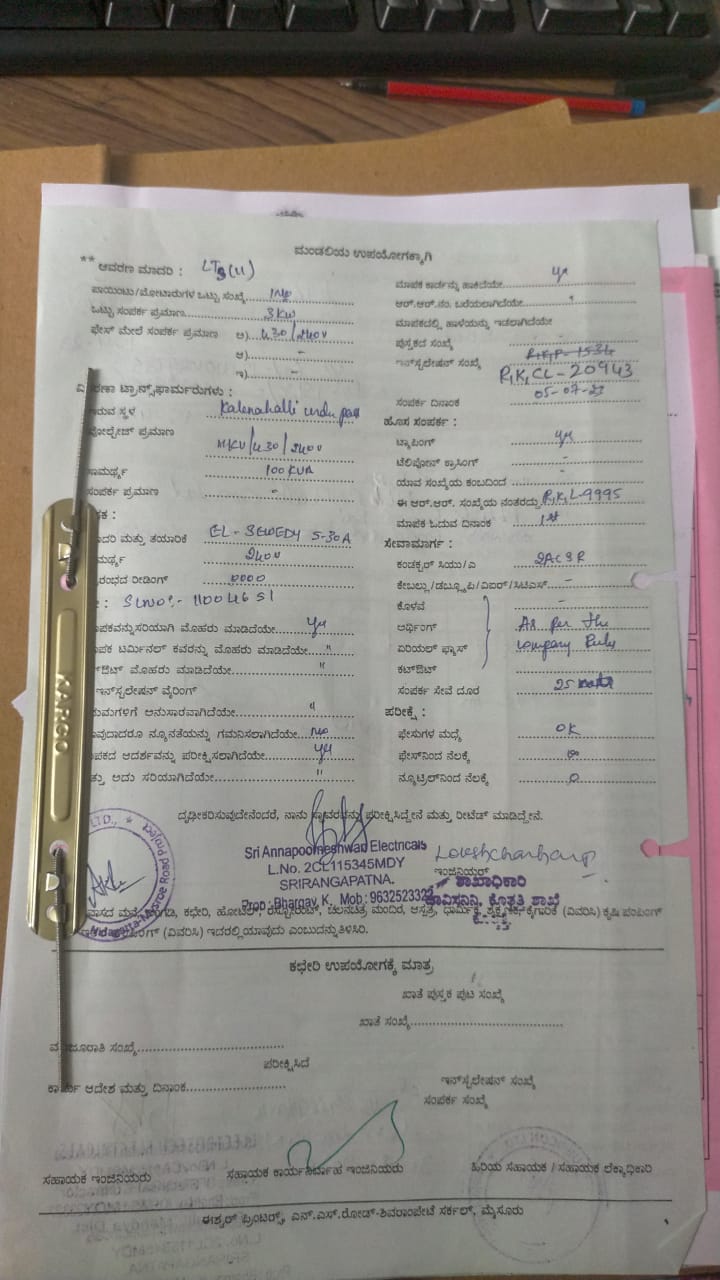 ಮಂಡಲಿಯ ಉಪಯೋಗಕ್ಕಾಗಿ
** ಆವರಣ ಮಾದರಿ : LT3(ii)
ಪಾಯಿಂಟು/ಮೋಟಾರುಗಳ ಒಟ್ಟು ಸಂಖ್ಯೆ
ಒಟ್ಟು ಸಂಪರ್ಕ ಪ್ರಮಾಣ 3KW
ಫೇಸ್ ಮೇಲೆ ಸಂಪರ್ಕ ಪ್ರಮಾಣ ಅ) 430/240V
ಆ) -
ಇ) -
ಟ್ರಾನ್ಸ್‌ಫಾರ್ಮರುಗಳು :
ಇರುವ ಸ್ಥಳ Kalenahalli under pass
ವೋಲ್ಟೇಜ್ ಪ್ರಮಾಣ 11KV/430/240V
ಸಾಮರ್ಥ್ಯ 100KVA
ಸಂಪರ್ಕ ಪ್ರಮಾಣ -
ಮಾದರಿ ಮತ್ತು ತಯಾರಿಕೆ EL-SEWEDY 5-30A
ಸಾಮರ್ಥ್ಯ 240V
ರೀಡಿಂಗ್ 0000
: SLNO:- 11004651
ಮಾಪಕವನ್ನು ಸರಿಯಾಗಿ ಮೊಹರು ಮಾಡಿದೆಯೇ Yes
ಟರ್ಮಿನಲ್ ಕವರನ್ನು ಮೊಹರು ಮಾಡಿದೆಯೇ "
ಕಟ್‌ಔಟ್ ಮೊಹರು ಮಾಡಿದೆಯೇ "
ಇನ್‌ಸ್ಟಲೇಷನ್ ವೈರಿಂಗ್
ನಿಯಮಗಳಿಗೆ ಅನುಸಾರವಾಗಿದೆಯೇ "
ಯಾವುದಾದರೂ ನ್ಯೂನತೆಯನ್ನು ಗಮನಿಸಲಾಗಿದೆಯೇ No
ಮಾಪಕದ ಆದರ್ಶವನ್ನು ಪರೀಕ್ಷಿಸಲಾಗಿದೆಯೇ Yes
ಮತ್ತು ಅದು ಸರಿಯಾಗಿದೆಯೇ "
ಮಾಪಕ ಕಾರ್ಡನ್ನು ಹಾಕಿದೆಯೇ Yes
ಆರ್.ಆರ್.ನಂ. ಬರೆಯಲಾಗಿದೆಯೇ "
ಮಾಪಕದಲ್ಲಿ ಹಾಳೆಯನ್ನು ಇಡಲಾಗಿದೆಯೇ
ಪುಸ್ತಕದ ಸಂಖ್ಯೆ -
R,K,P-1534
ಇನ್‌ಸ್ಟಲೇಷನ್ ಸಂಖ್ಯೆ R,K,CL-20943
ಸಂಪರ್ಕ ದಿನಾಂಕ 05-07-23
ಹೊಸ ಸಂಪರ್ಕ :
ಟ್ಯಾಪಿಂಗ್ Yes
ಟೆಲಿಫೋನ್ ಕ್ರಾಸಿಂಗ್ -
ಯಾವ ಸಂಖ್ಯೆಯ ಕಂಬದಿಂದ -
ಈ ಆರ್.ಆರ್. ಸಂಖ್ಯೆಯ ನಂತರದ್ದು R,K,L-9995
ಮಾಪಕ ಓದುವ ದಿನಾಂಕ 1st
ಸೇವಾಮಾರ್ಗ :
ಕಂಡಕ್ಟರ್ ಸಿಯು/ಎ 2ACSR
ಕೇಬಲ್ಲು/ಡಬ್ಲ್ಯೂಪಿ/ವಿಐರ್/ಸಿಟಿಎಸ್ -
ಕೊಳವೆ -
ಅರ್ಥಿಂಗ್ As per the
ಏರಿಯಲ್ ಫ್ಯೂಸ್ company Rules
ಕಟ್‌ಔಟ್
ಸಂಪರ್ಕ ಸೇವೆ ದೂರ 25
ಪರೀಕ್ಷೆ :
ಫೇಸುಗಳ ಮಧ್ಯೆ OK
ಫೇಸ್‌ನಿಂದ ನೆಲಕ್ಕೆ
ನ್ಯೂಟ್ರಲ್‌ನಿಂದ ನೆಲಕ್ಕೆ 0
ದೃಢೀಕರಿಸುವುದೇನೆಂದರೆ, ನಾನು ಸ್ಥಾವರವನ್ನು ಪರೀಕ್ಷಿಸಿದ್ದೇನೆ ಮತ್ತು ರೀಟೆಡ್ ಮಾಡಿದ್ದೇನೆ.
Sri Annapoorneshwari Electricals
L.No. 2CL115345MDY
SRIRANGAPATNA.
Prop : Bhargav. K, Mob : 9632523323
ಇಂಜಿನಿಯರ್
ಶಾಖಾಧಿಕಾರಿ
ಚಾವಿಸನಿನಿ, ಕೊತ್ತತ್ತಿ ಶಾಖೆ
ವಾಸದ ಮನೆ, ಅಂಗಡಿ, ಕಛೇರಿ, ಹೋಟೆಲ್, ರೆಸ್ಟೋರೆಂಟ್, ಚಲನಚಿತ್ರ ಮಂದಿರ, ಆಸ್ಪತ್ರೆ, ಧಾರ್ಮಿಕ, ಶೈಕ್ಷಣಿಕ, ಕೈಗಾರಿಕೆ (ವಿವರಿಸಿ) ಕೃಷಿ ಪಂಪಿಂಗ್
(ವಿವರಿಸಿ) ಇದರಲ್ಲಿ ಯಾವುದು ಎಂಬುದನ್ನು ತಿಳಿಸಿರಿ.
ಕಛೇರಿ ಉಪಯೋಗಕ್ಕೆ ಮಾತ್ರ
ಖಾತೆ ಪುಸ್ತಕ ಪುಟ ಸಂಖ್ಯೆ
ಖಾತೆ ಸಂಖ್ಯೆ
ಮಂಜೂರಾತಿ ಸಂಖ್ಯೆ
ಪರೀಕ್ಷಿಸಿದೆ
ಕಾರ್ಯ ಆದೇಶ ಮತ್ತು ದಿನಾಂಕ
ಇನ್‌ಸ್ಟಲೇಷನ್ ಸಂಖ್ಯೆ
ಸಂಪರ್ಕ ಸಂಖ್ಯೆ
ಸಹಾಯಕ ಇಂಜಿನಿಯರು ಸಹಾಯಕ ಕಾರ್ಯನಿರ್ವಾಹ ಇಂಜಿನಿಯರು ಹಿರಿಯ ಸಹಾಯಕ / ಸಹಾಯಕ ಲೆಕ್ಕಾಧಿಕಾರಿ
ಈಶ್ವರ್ ಪ್ರಿಂಟರ್ಸ್, ಎನ್.ಎಸ್.ರೋಡ್-ಶಿವರಾಂಪೇಟೆ ಸರ್ಕಲ್, ಮೈಸೂರು
KARGO